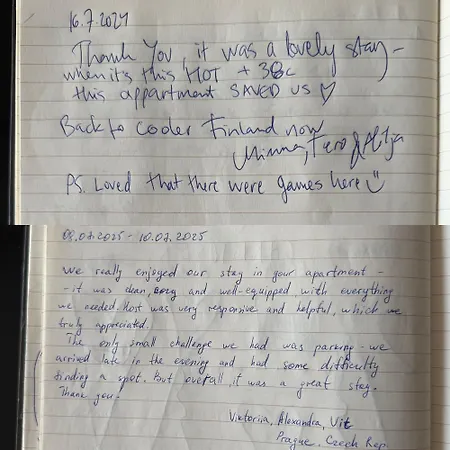 16.7.2024
Thank You, it was a lovely stay -
when it's this HOT + 38c
this appartment SAVED US ♡
Back to cooler Finland now
Minna, Eero &
PS. Loved that there were games here
08.07.2025 - 10.07.2025
We really enjoyed our stay in your apartment -
- it was clean, cozy and well-equipped, with everything
we needed. Host was very responsive and helpful, which we
truly appreciated.
The only small challenge we had was parking - we
arrived late in the evening and had some difficulty
finding a spot. But overall it was a great stay.
Thank you.
Viktoriia, Alexandra, Vit
Prague, Czech Rep.